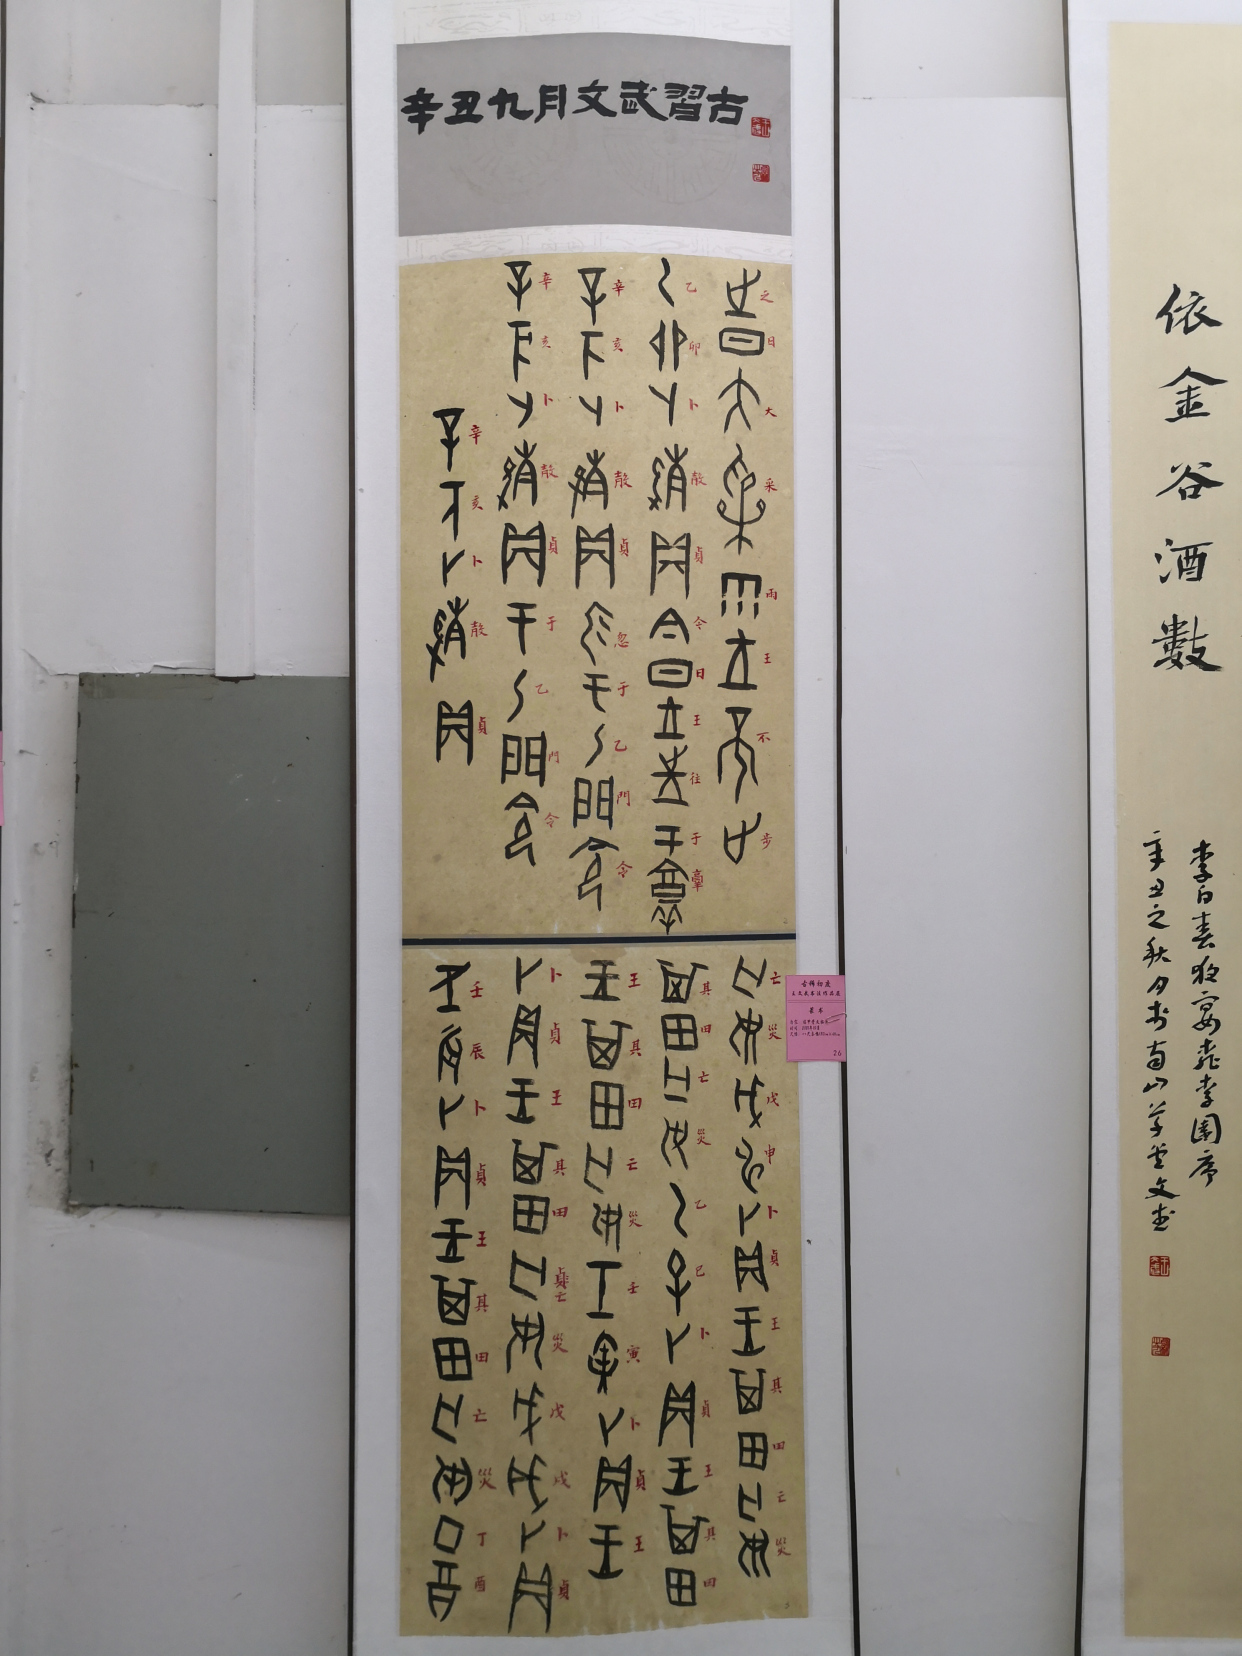 辛丑九月文武習古
之日大采雨王不步
乙卯卜㱿貞今日王往于𦎫
辛亥卜㱿貞忽于乙門令
辛亥卜㱿貞于乙門令
辛亥卜㱿貞
亡災戊申卜貞王其田亡災
其田亡災乙巳卜貞王其田
王其田亡災壬寅卜貞王
卜貞王其田亡災戊戌卜貞
壬辰卜貞王其田亡災丁酉
古稀初度
王文武書法作品展
26
依金谷酒數
李白春夜宴桃李園序
辛丑之秋月於南山草堂文武